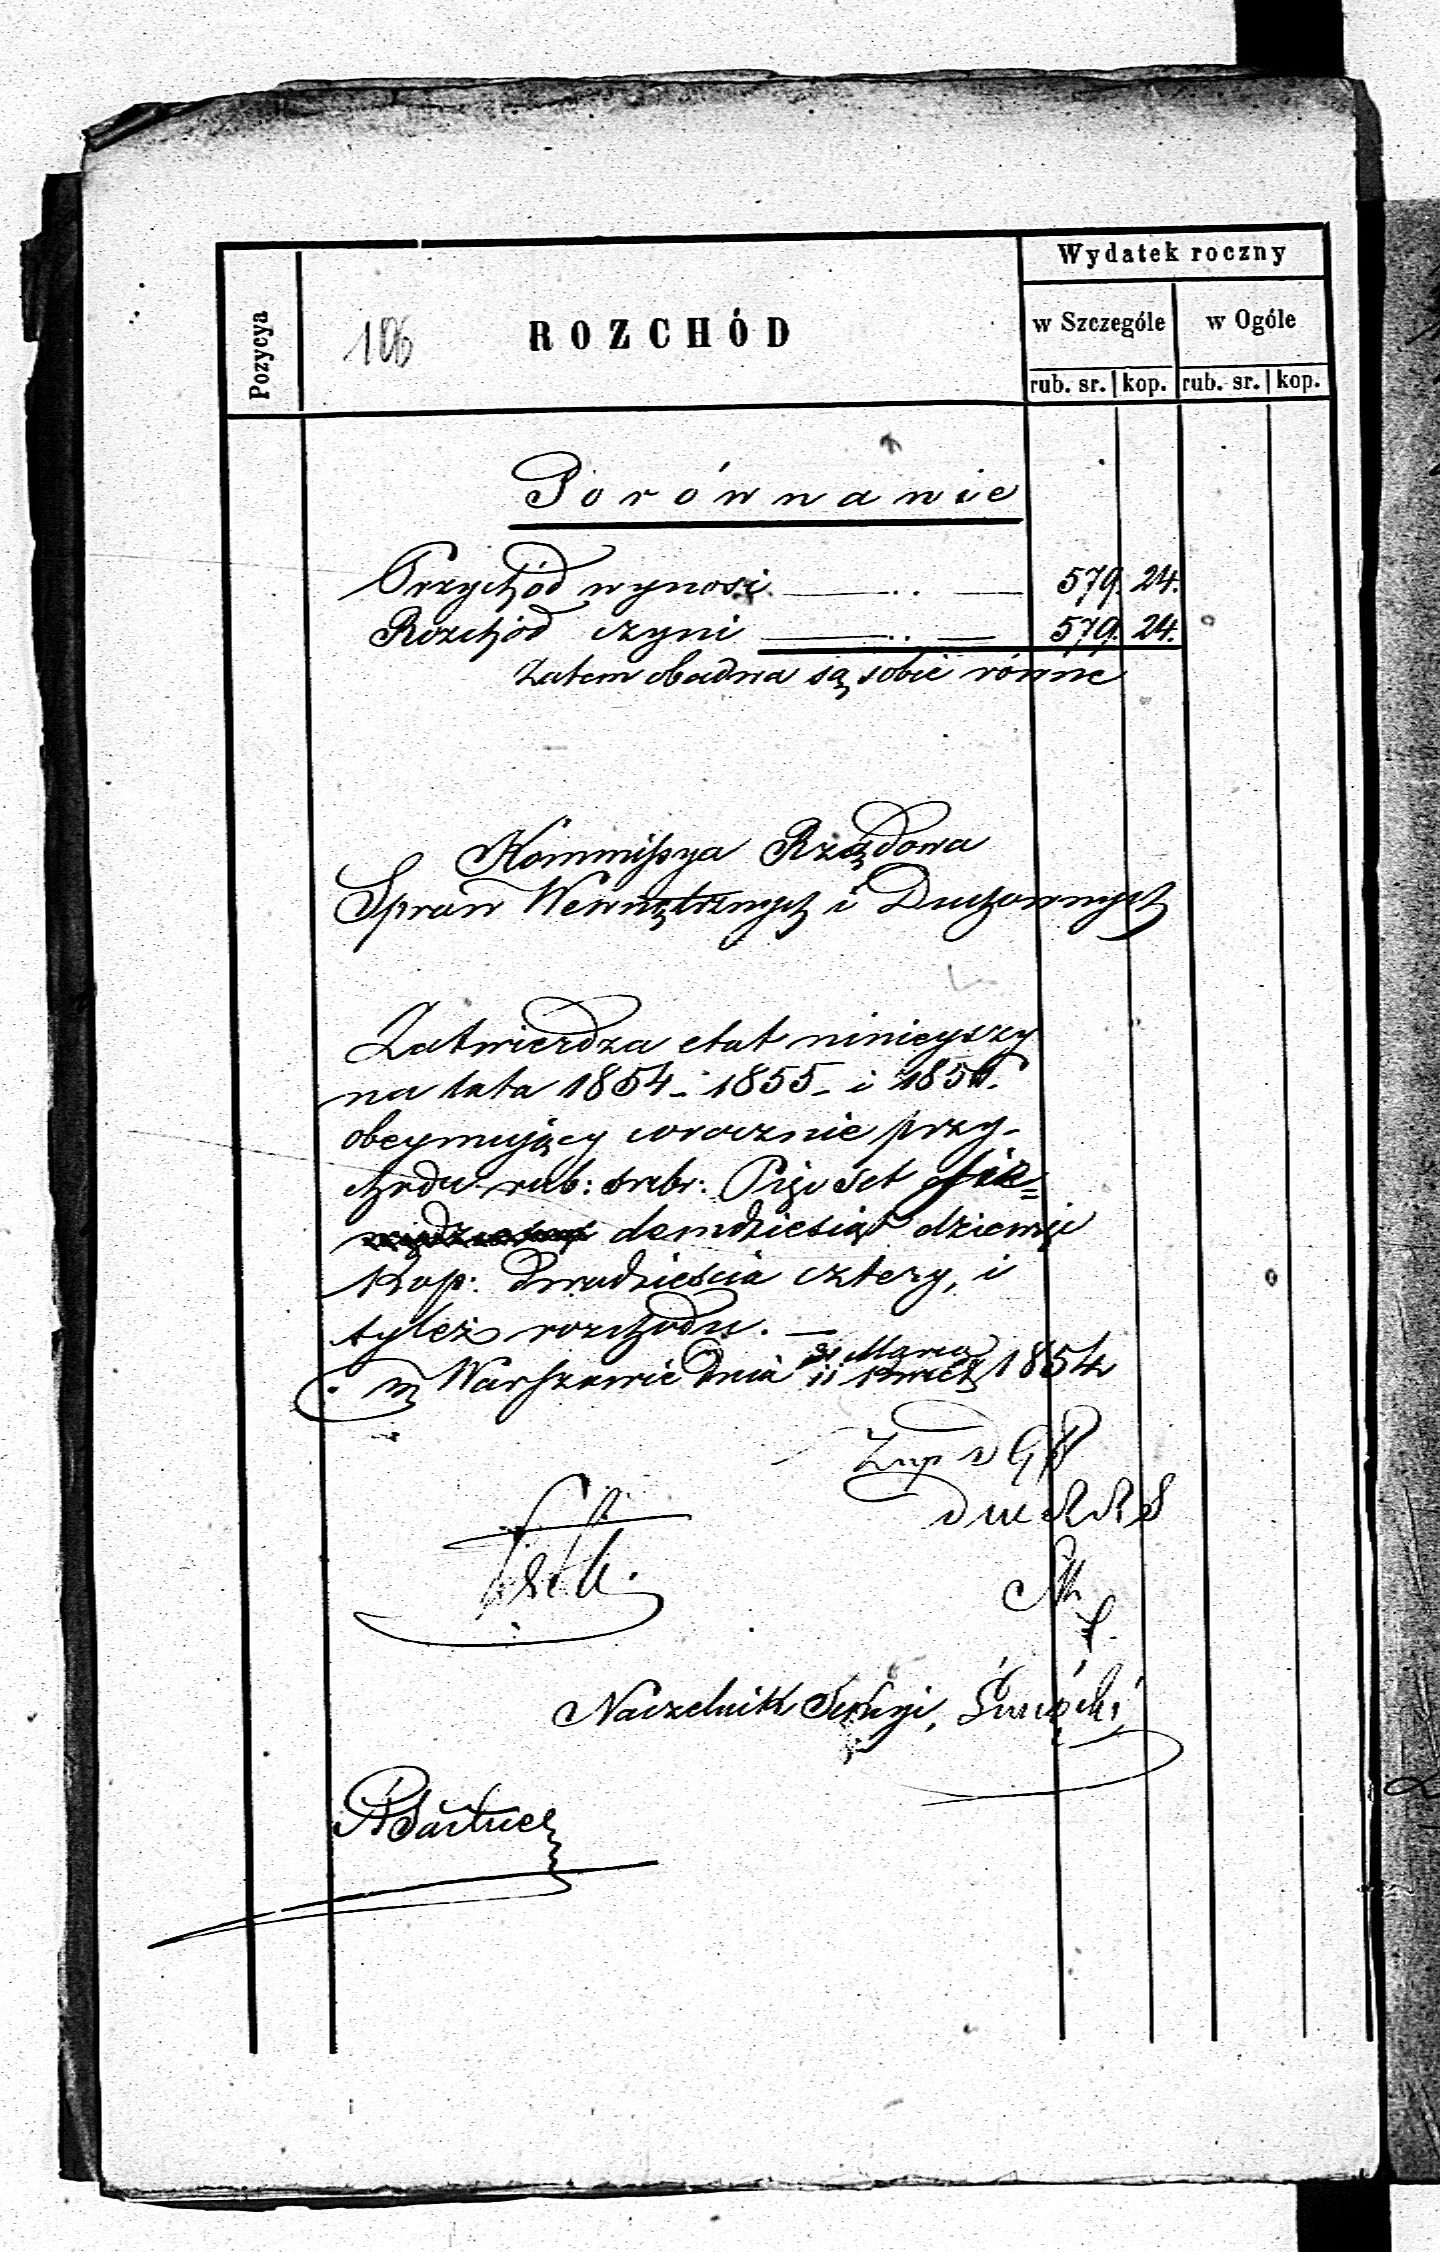 Wydatek roczny
Pozycya
106
ROZCHÓD
w Szczególe
w Ogóle
rub. sr. kop. rub. sr. kop.
Porównanie
Przychód wynosi 579. 24.
Rozchód czyni 579. 24.
Zatem obadwa są sobie równe
Kommissya Rządowa
Spraw Wewnętrznych i Duchownych
Zatwierdza etat ninieyszy
na lata 1854 - 1855 - i 1856.
obeymujący corocznie przy-
chodu rub: srebr: Pięćset sie=
demdziesiąt dziewięć
Kop: Dwadzieścia cztery, i
tyleż rozchodu. —
w Warszawie dnia 31 Marca / 12 Kwiet 1854
Naczelnik Sekcyi,